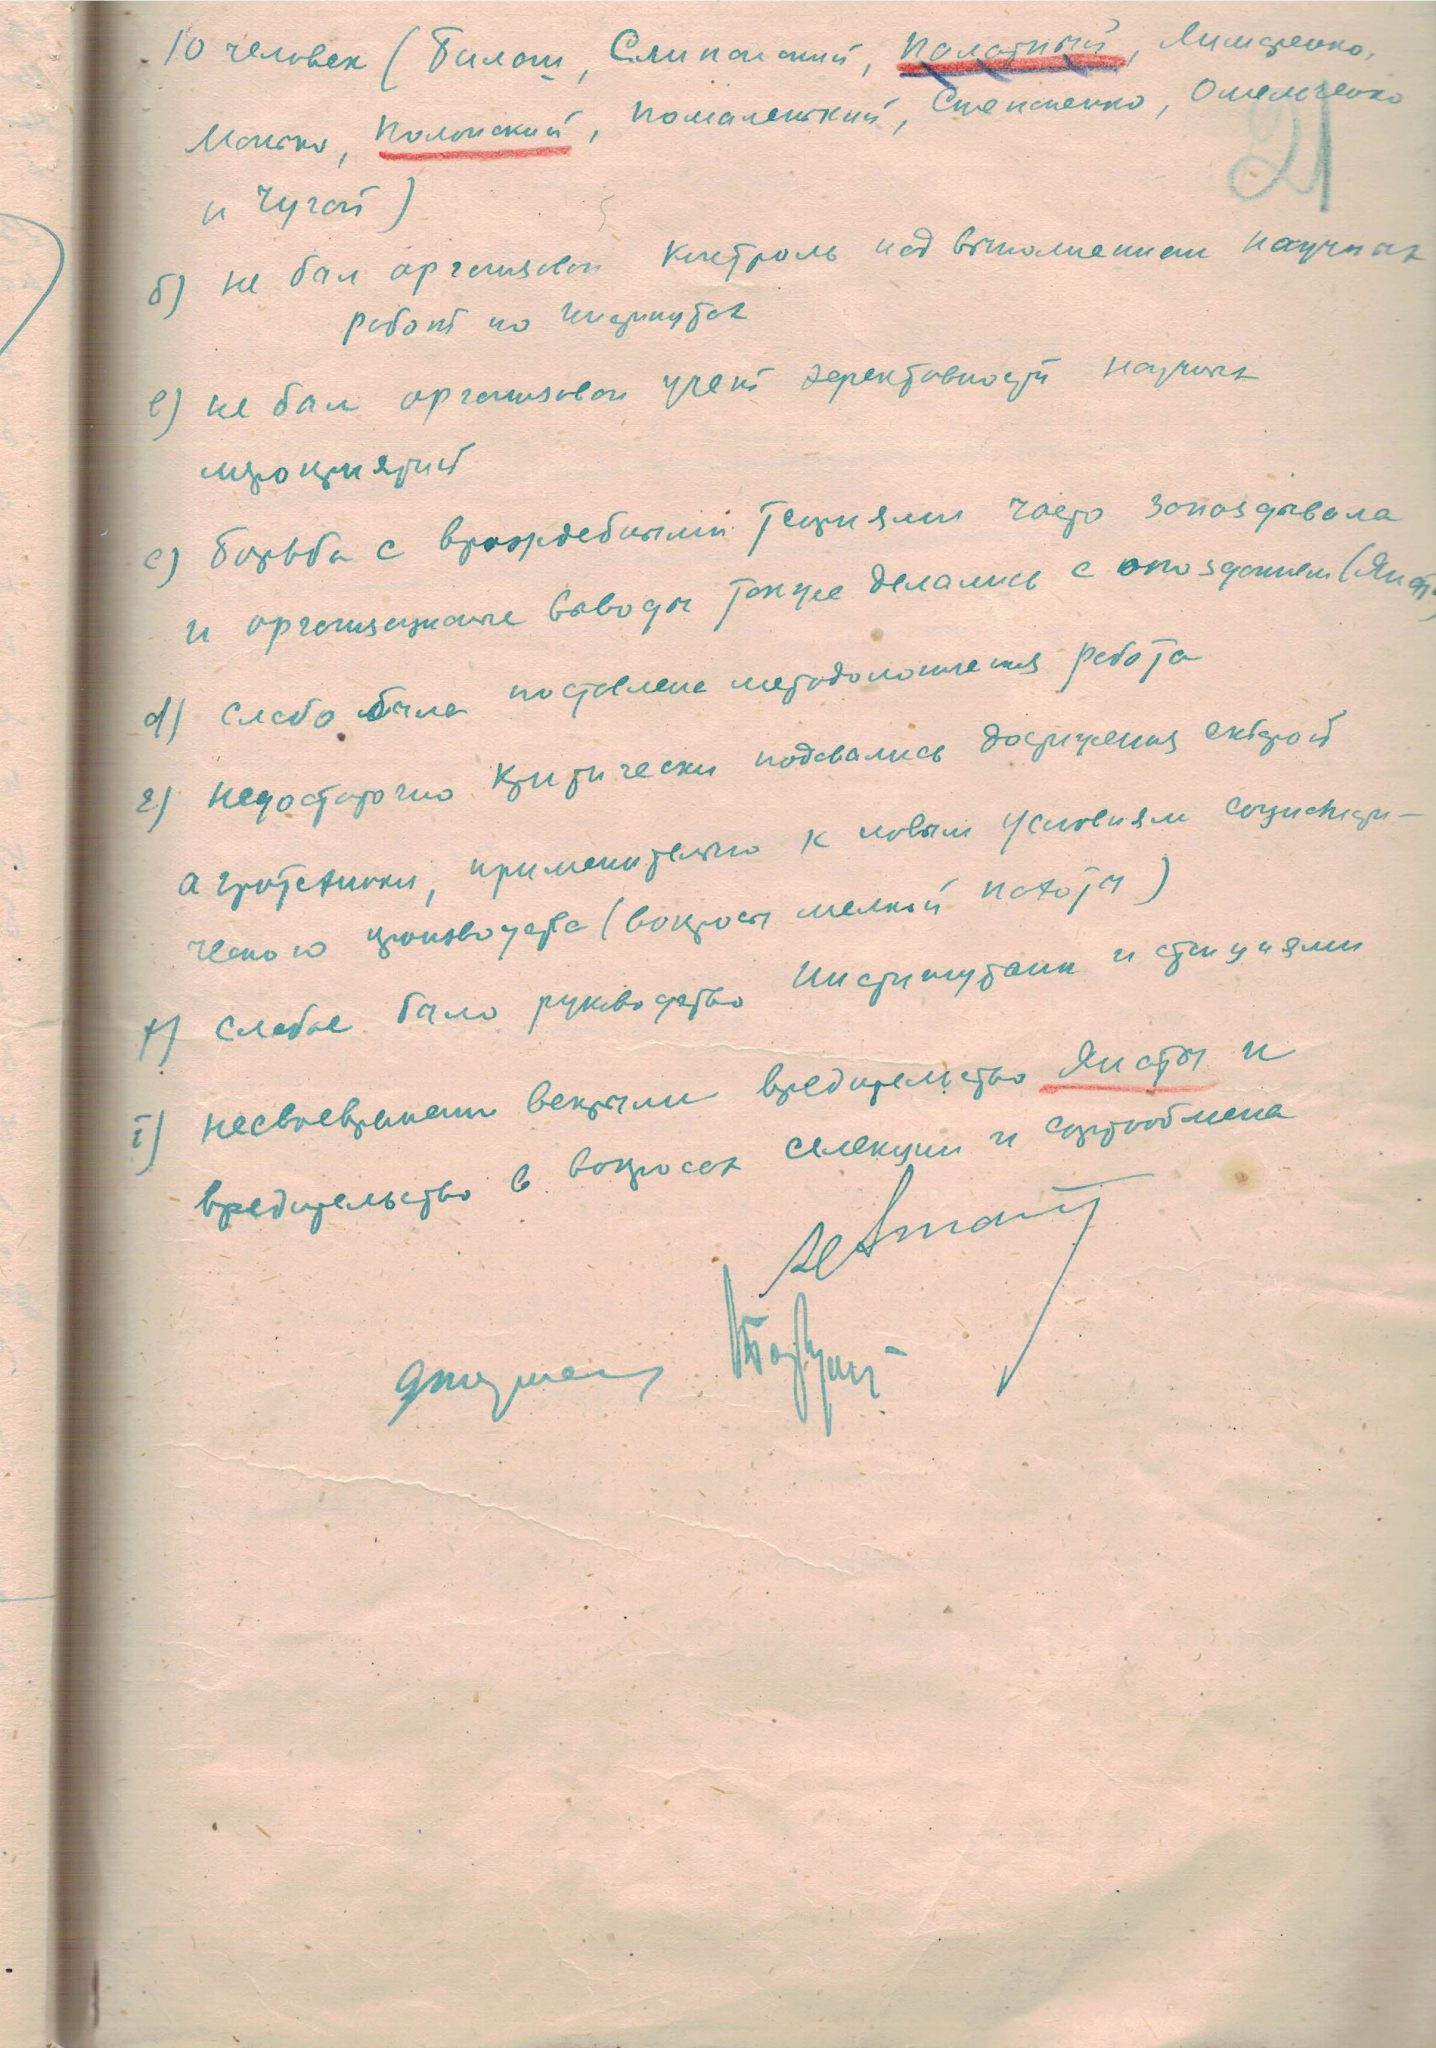 10 человек (Билаш, Слипанский, Палатный, Лимаренко,
Манько, Полонский, Помаленький, Степаненко, Омельченко
21
и Чугай)
б) не был организован контроль над выполнением научных
работ по институтах
в) не был организован учет эффективности научных
мероприятий
с) борьба с враждебными теориями часто запаздывала
и организационные выводы также делались с опозданием (Яната)
d) слабо была поставлена методологическая работа
е) недостаточно критически подавались достижения старой
агротехники, применительно к новым условиям социалисти-
ческого производства (вопросы мелкой пахоты)
f) слабое было руководство институтами и станциями
i) несвоевременно вскрыли вредительство Янаты и
вредительство в вопросах селекции и сортообмена